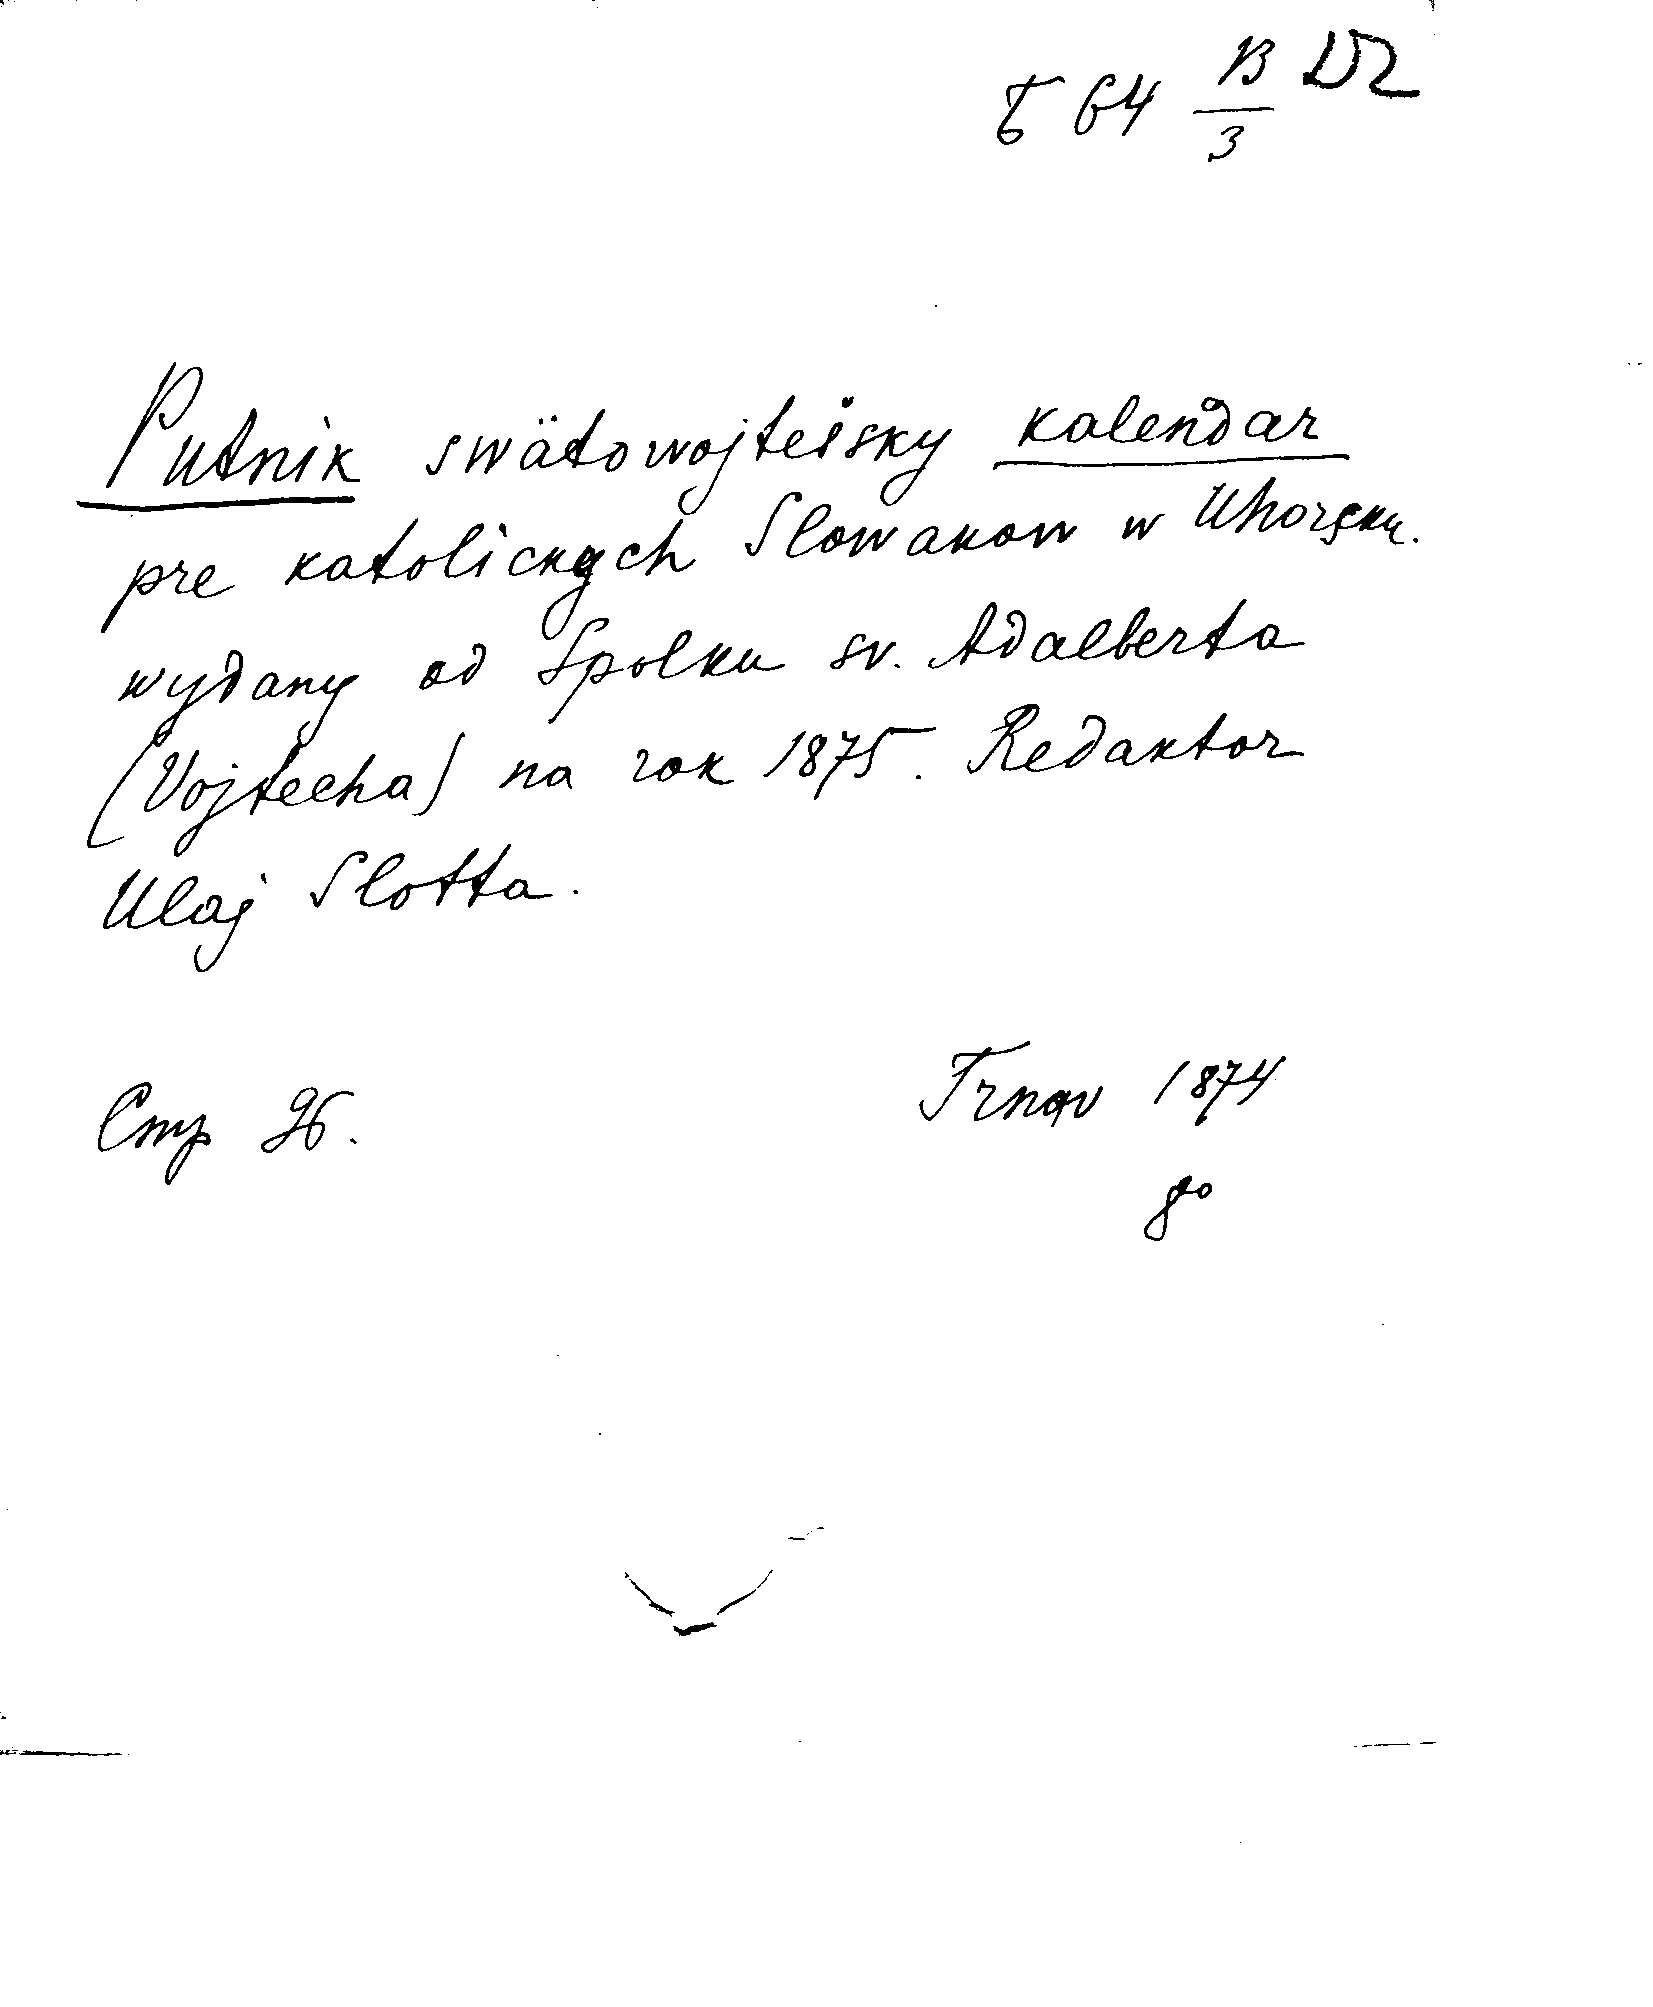 Б 64 13/3
Putnik swätowojteisky kalendar
pre katolickych Slowakow w Uhorsku.
wydany od Spolku sv. Adalberta
(Vojtecha) na rok 1875. Redaktor
Ulaj Slotta.
Trnav 1874
Стр 96.
8°